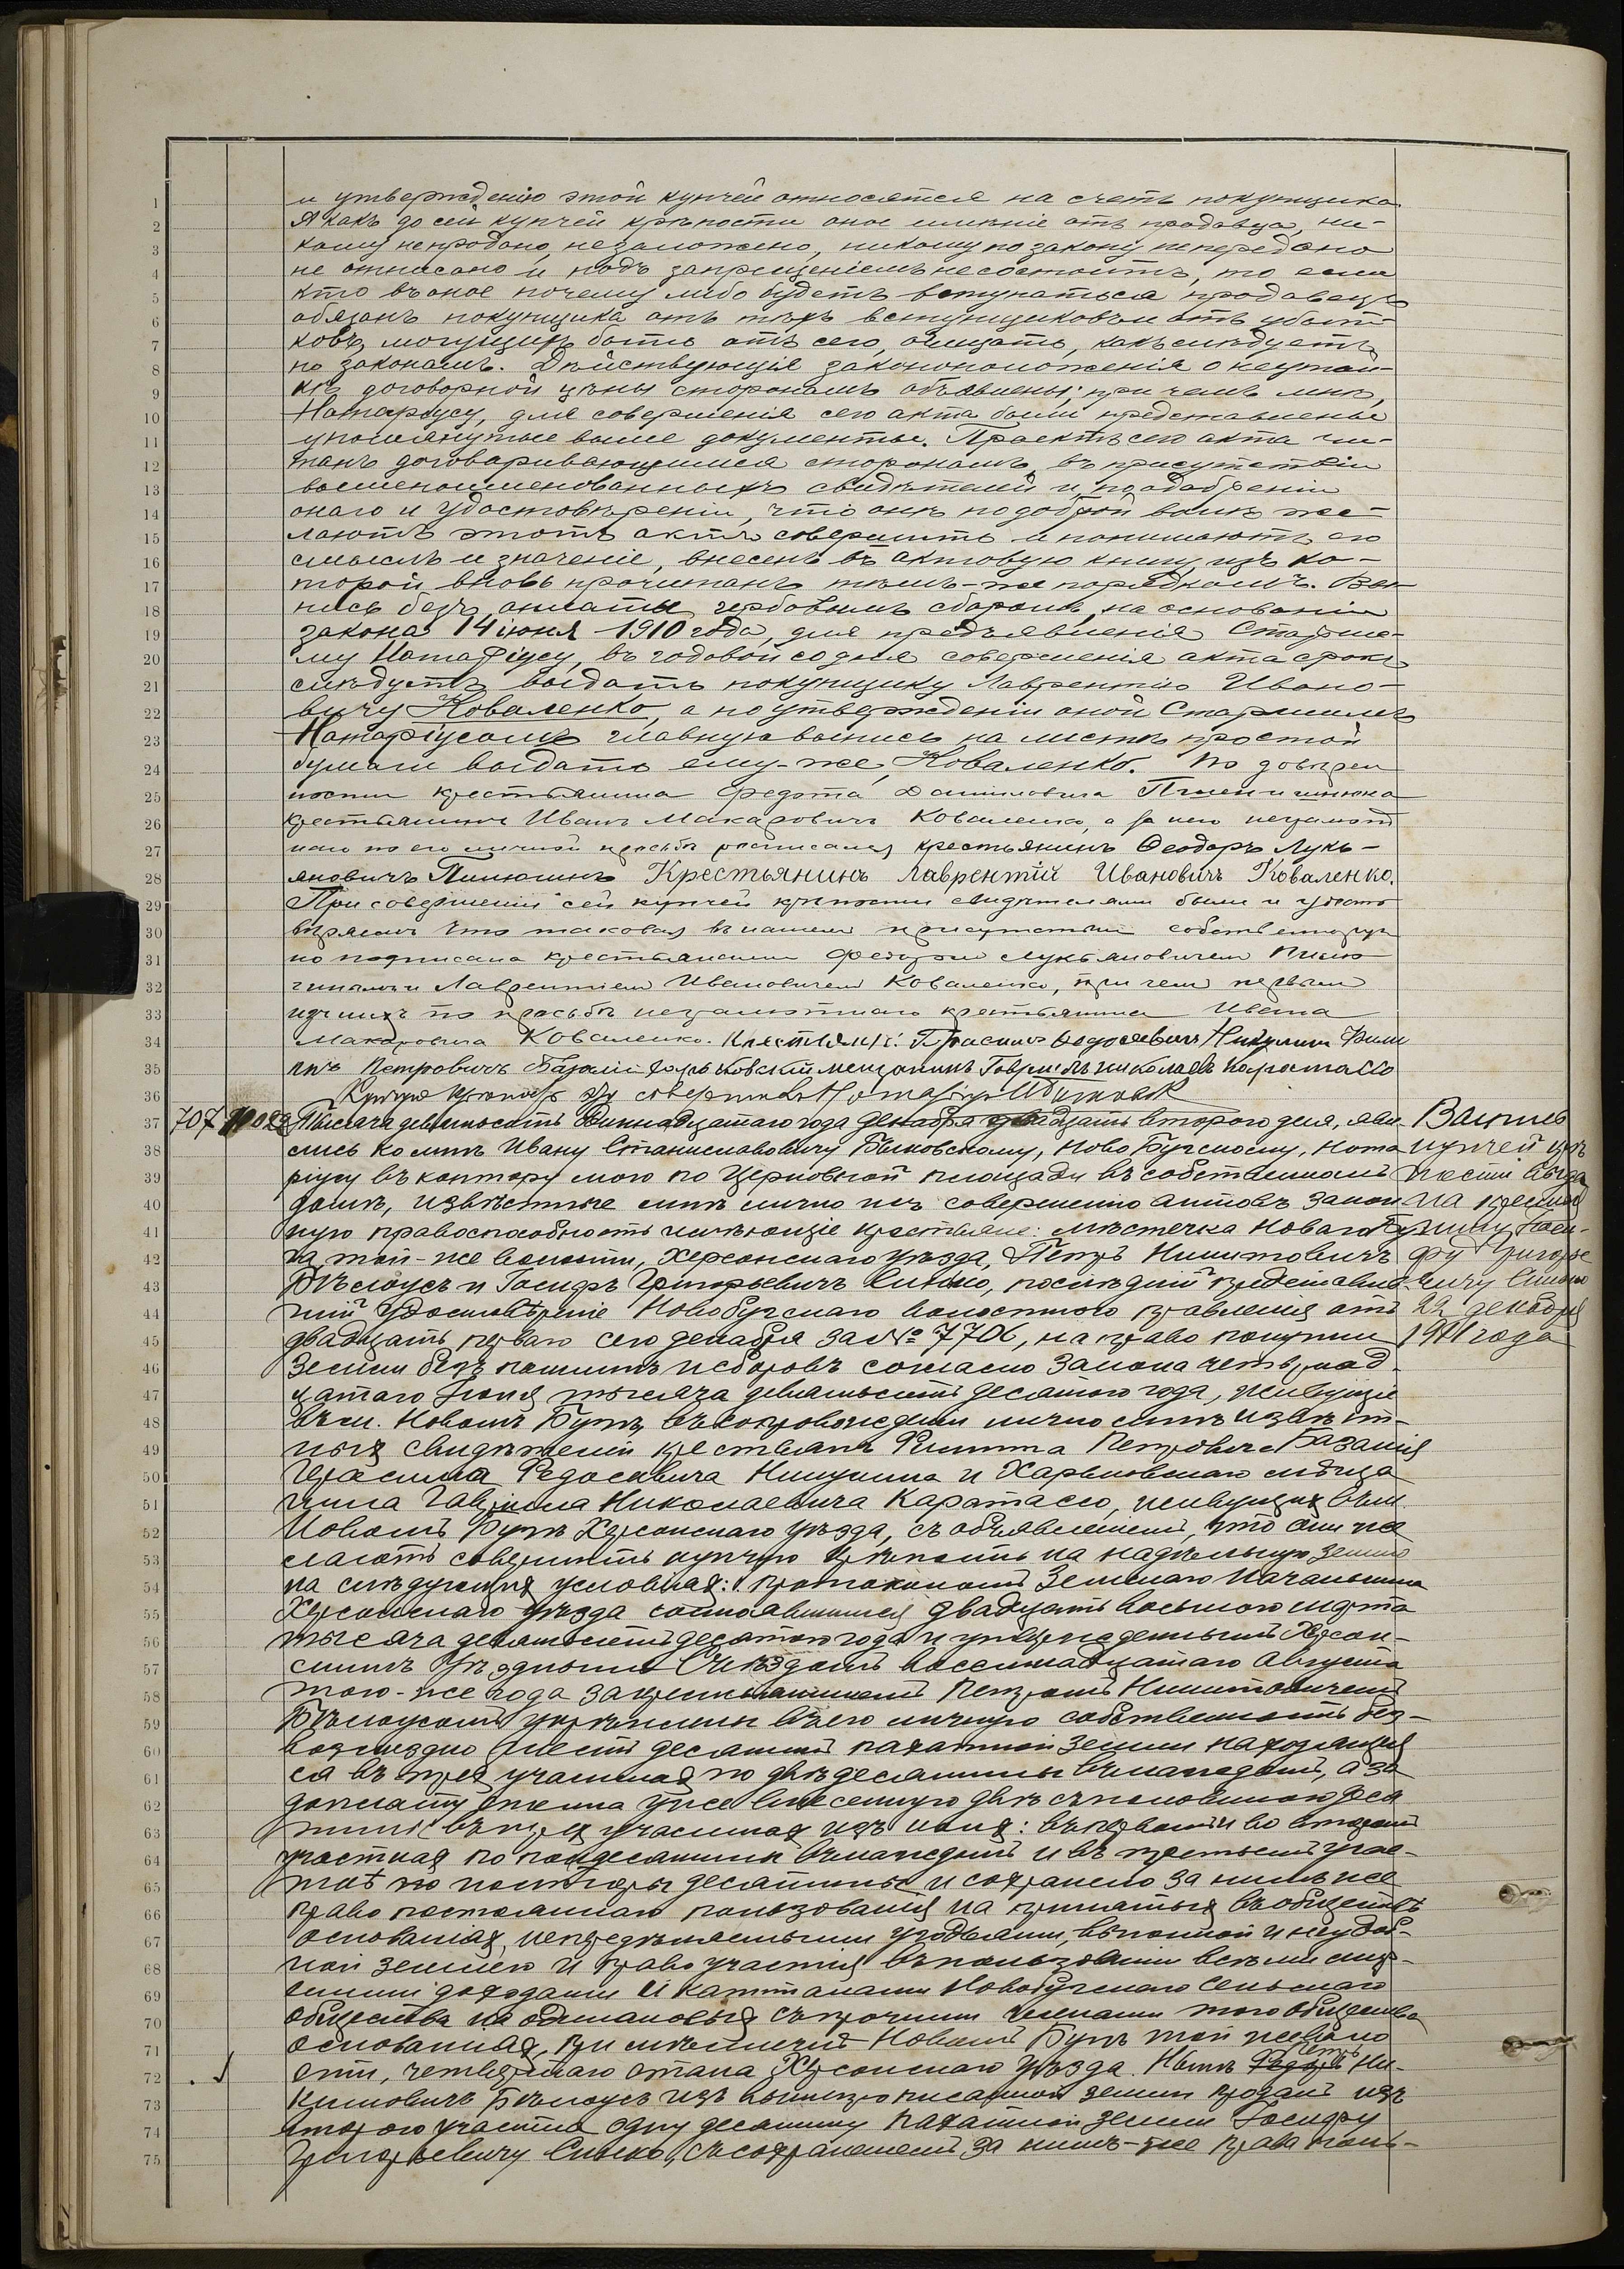 и утвержденію этой купчей относятся на счетъ покупщика
А какъ до сей купчей крѣпости оное имѣніе отъ продавца, ни-
кому не продано, не заложено, никому по закону не передано
не отписано и подъ запрещеніемъ не состоитъ, то если
кто въ оное почему либо будетъ вступаться продавецъ
обязанъ покупщика отъ тѣхъ вступщиковъ и отъ убыт-
ковъ, могущихъ быть отъ сего, очищать, какъ слѣдуетъ
по законамъ. Дѣйствующія законоположенія о неутай-
кѣ договорной цѣны сторонамъ объявлены; при чемъ мнѣ,
Нотаріусу, для совершенія сего акта были представлены
упомянутые выше документы. Проектъ сего акта чи-
танъ договаривающимся сторонамъ, въ присутствіи
вышепоименованныхъ свидѣтелей и, по одобреніи
онаго и удостовѣреніи, что онѣ по доброй волѣ же-
лаютъ этотъ актъ совершить и понимаютъ его
смыслъ и значеніе, внесенъ въ актовую книгу, изъ ко-
торой вновь прочитанъ тѣмъ-же порядкомъ. Вы-
пись безъ оплаты гербовымъ сборомъ, на основаніи
закона 14 іюня 1910 года, для предъявленія Старше-
му Нотаріусу, въ годовой со дня совершенія акта срокъ
слѣдуетъ выдать покупщику Лаврентію Ивано-
вичу Коваленко, а по утвержденіи оной Старшимъ
Нотаріусомъ главную выпись на листѣ простой
бумаги выдать ему-же, Коваленко. По довѣрен
ности крестьянина Федота Даниловича
крестьянинъ Иванъ Макаровичъ Коваленко, а за него неграмот
наго по его личной просьбѣ росписался крестьянинъ Ѳеодоръ Лукь-
яновичъ Пилюгинъ Крестьянинъ Лаврентій Ивановичъ Коваленко.
При совершеніи сей купчей крѣпости свидѣтелями были и удосто
вѣряемъ что таковая въ нашемъ присутствіи собственноруч
но подписана крестьянами Федоромъ Лукьяновичемъ Пилю
гинымъ и Лаврентіемъ Ивановичемъ Коваленко, при чемъ первымъ
изъ нихъ по просьбѣ неграмотнаго крестьянина Ивана
Макаровича Коваленко. Крестьяне: Герасимъ Ѳедосѣевичъ Никулинъ Фили
ппъ Петровичъ Базалій Харьковскій мещанинъ Гавриилъ Николаевъ Каратассо
Купчую крѣпость эту совершилъ Нотаріусъ И Быковск
707 11022 Тысяча девятьсотъ одиннадцатаго года декабря двадцать второго дня, яви- Выпись
лись ко мнѣ Ивану Станиславовичу Быковскому, Ново Бугскому, Нота купчей крѣ
ріусу въ контору мою по Церковной площади въ собственномъ пости выда
домѣ, извѣстные мнѣ лично и къ совершенію актовъ закон на крестья
ную правоспособность имѣющіе крестьяне: мѣстечка Новаго Бу нину Іоси-
га, той-же волости, Херсонскаго уѣзда, Петръ Никитовичъ фу Григорье
Бѣлоусъ и Іосифъ Григорьевичъ Синько, послѣдній представив- вичу Синько
шій удостовѣреніе Новобугскаго волостного правленія отъ 22 декабря
двадцать перваго сего декабря за № 7706, на право покупки 1911 года
земли безъ пошлинъ и сборовъ согласно закона четырнад-
цатаго Іюня тысяча девятьсотъ десятаго года, живущіе
въ м. Новомъ Бугѣ, въ сопровожденіи лично мнѣ извѣст-
ныхъ свидѣтелей крестьянъ Филиппа Петровича Базалія
Герасима Федосѣевича Никулина и Харьковскаго мѣща
нина Гавріила Николаевича Каратассо, живущихъ въ м.
Новомъ Бугѣ Херсонскаго уѣзда, съ объявленіемъ, что они же
лаютъ совершить купчую крѣпость на надѣльную землю
на слѣдующихъ условіяхъ: протоколомъ Земскаго Начальника
Херсонскаго уѣзда состоявшимся двадцать восьмого марта
тысяча девятьсотъ десятаго года и утвержденнымъ Херсон-
скимъ Уѣзднымъ Съѣздомъ восемнадцатаго Августа
того-же года за крестьяниномъ Петромъ Никитовичемъ
Бѣлоусомъ укрѣплены въ его личную собственность без-
возмездно шесть десятинъ пахатной земли находящей
ся въ трехъ участкахъ по двѣ десятины въ каждомъ, а за
доплату уже внесенную двѣ съ половиною деся
тины въ трехъ участкахъ изъ коихъ: въ первомъ и во второмъ
участкахъ по полдесятины въ каждомъ и въ третьемъ учас-
ткѣ по полторы десятины и сохранено за нимъ же
право постояннаго пользованія на принятыхъ въ обществѣ
основаніяхъ, непредѣляемыми угодьями, выгонной и неудоб-
ной землею и право участія въ пользованіи всѣми мір-
скими доходами и капиталами Новобугскаго сельскаго
общества на одинаковыхъ съ прочими членами того общества
основаніяхъ, при мѣстечкѣ Новомъ Бугѣ той же воло
сти, четвертаго стана Херсонскаго уѣзда. Нынѣ Петръ Ни-
китовичъ Бѣлоусъ изъ вышепрописанной земли продалъ изъ
второго участка одну десятину пахатной земли Іосифу
Григорьевичу Синько, съ сохраненіемъ за нимъ-же права поль-